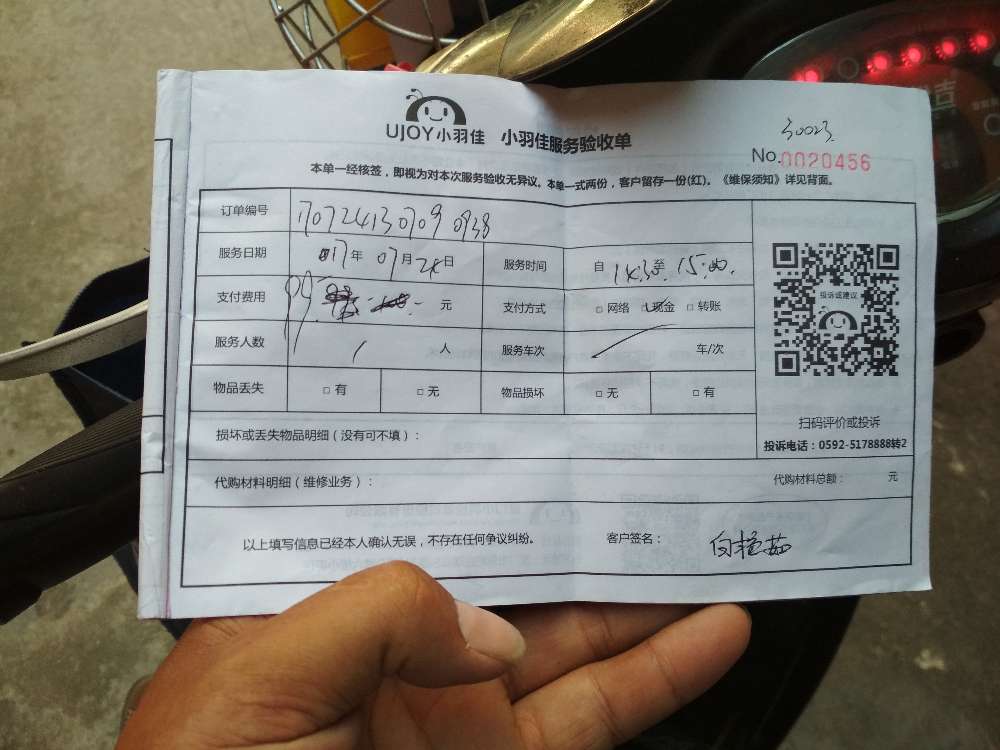 UJOY小羽佳 小羽佳服务验收单
30023
No.0020456
本单一经核签，即视为对本次服务验收无异议。本单一式两份，客户留存一份(红)。《维保须知》详见背面。
订单编号 170724130709 0938
服务日期 017年 07月 24日 服务时间 自 14:30 至 15:00.
支付费用 99. 元 支付方式 □网络 □现金 □转账
投诉或建议
服务人数 1 人 服务车次 车/次
物品丢失 □有 □无 物品损坏 □无 □有
扫码评价或投诉
损坏或丢失物品明细（没有可不填）：
投诉电话：0592-5178888转2
代购材料明细（维修业务）： 代购材料总额： 元
以上填写信息已经本人确认无误，不存在任何争议纠纷。 客户签名：